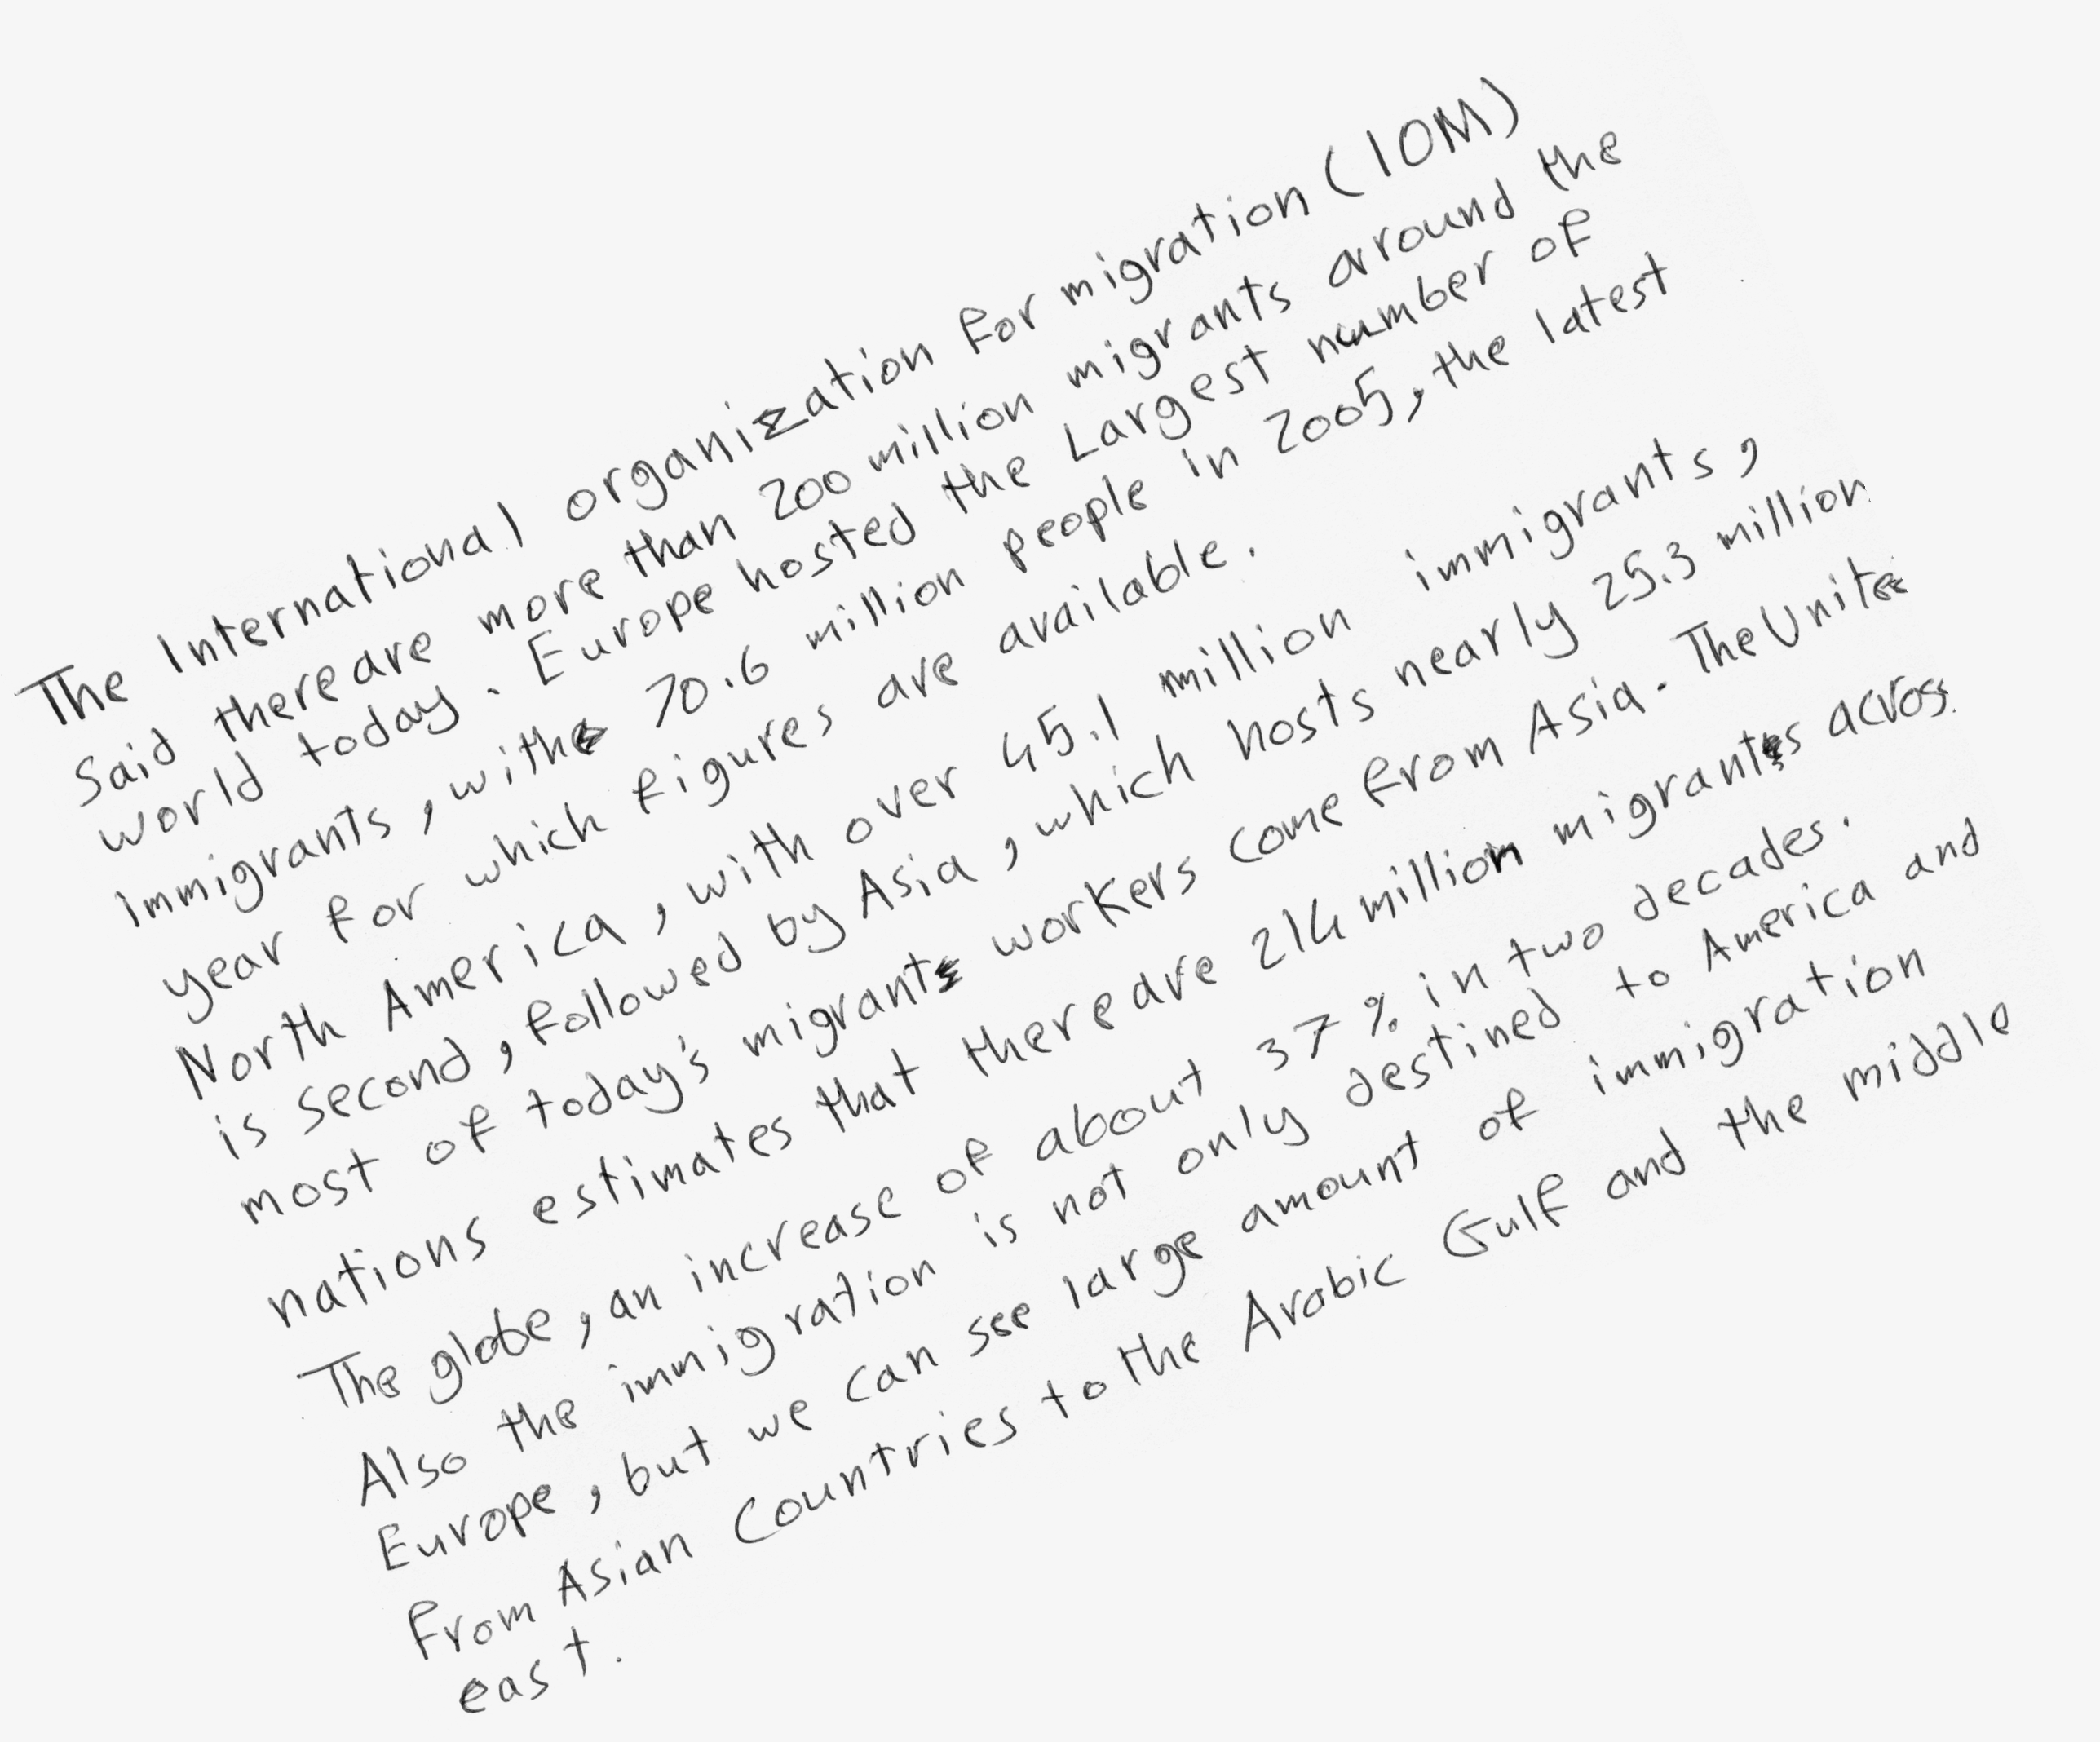 The International organization for migration (IOM)
Said there are more than 200 million migrants around the
world today. Europe hosted the Largest number of
immigrants, with 70.6 million people in 2005, the latest
year for which figures are available.
North America, with over 45.1 million immigrants,
is second, followed by Asia, which hosts nearly 25.3 million
most of today's migrant workers come from Asia. The Unite
nations estimates that there are 214 million migrants across
The globe, an increase of about 37 % in two decades.
Also the immigration is not only destined to America and
Europe, but we can see large amount of immigration
From Asian Countries to the Arabic Gulf and the middle
east.